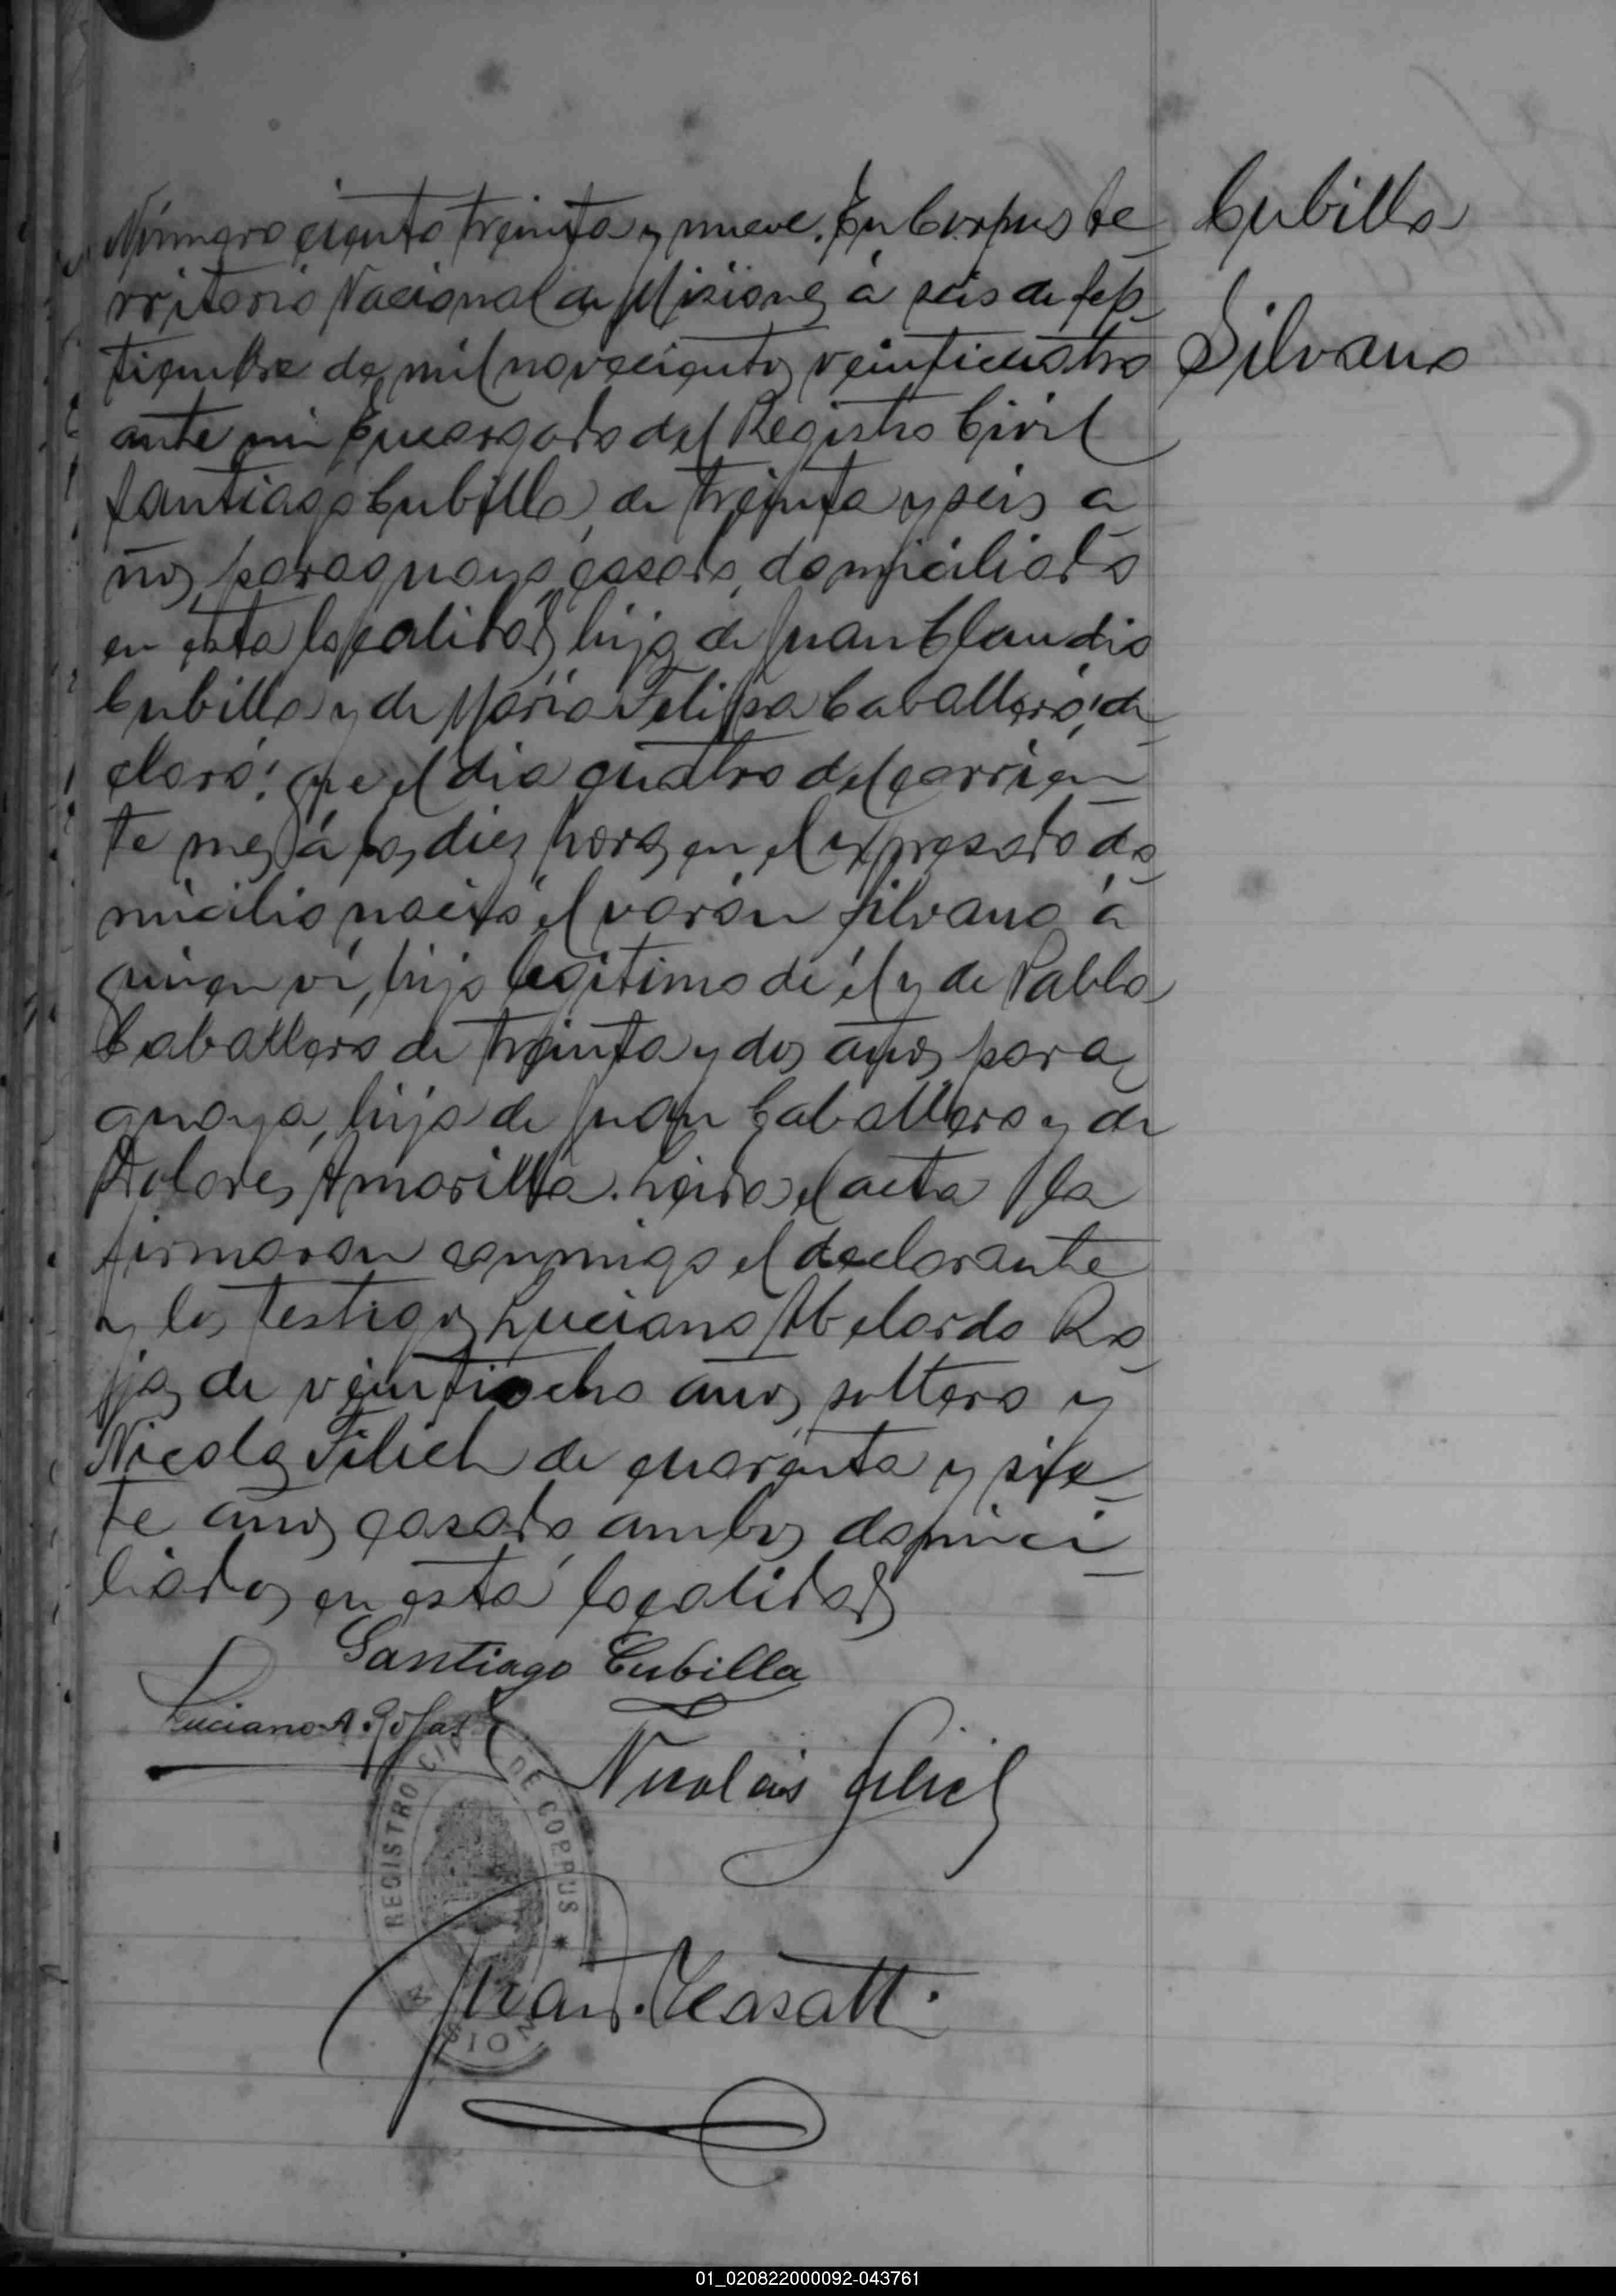 Número ciento treinta y nueve. En Corpus te
rritorio Nacional de Misiones, á seis de sep
tiembre de mil novecientos veinticuatro
ante mi Encargado del Registro Civil
Santiago Cubilla, de treinta y seis a
ños, paraguayo, casado, domiciliado
en esta localidad, hijo de Juan Claudio
Cubilla y de María Felipa Caballero, de
claró: que el dia cuatro del corrien
te mes á las diez horas en el expresado do
micilio nació el varón Silvano á
quien ví, hijo legítimo de él y de Pabla
Caballero de treinta y dos años, para
guaya, hija de Juan Caballero y de
Dolores Amarilla. Leida el acta la
firmaron conmigo el declarante
y los testigos Luciano Abelardo Ro
jas de veintiocho años, soltero y
Nicolas Filich de cuarenta y sie
te años casado ambos domici
liados en esta localidad
Cubilla
Silvano
Santiago Cubilla
Luciano A. Rojas
Nicolás Filich
REGISTRO CIVIL DE CORPUS *
MISIONES
Juan T. Casatti
01_020822000092-043761